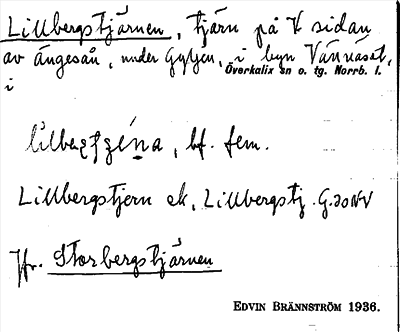 Lillbergstjärnen, tjärn på V sidan
av ängesån, under Gyljen, i byn Vännäsåt,
Överkalix sn o. tg. Norrb. l.
i
bf. fem.
Lillbergstjern ek, Lillbergstj. G. 30 NV
Jfr. Storbergstjärnen
EDVIN BRÄNNSTRÖM 1936.